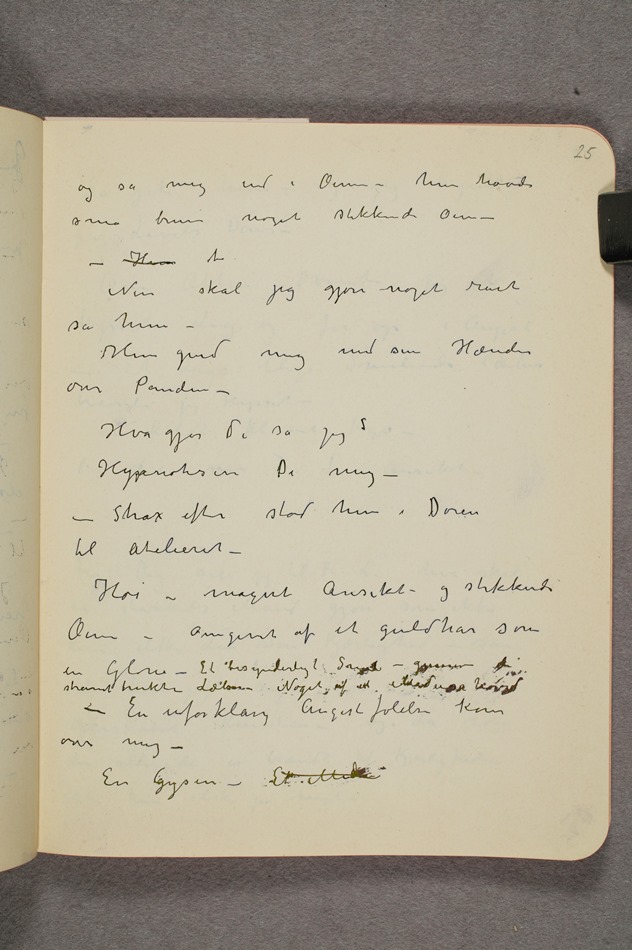 25
og så mig ind i Øinene – hun havde
små brune noget stikkende Øine –
– Hun
Nu skal jeg gjøre noget rart
sa hun –
Hun gned mig med sine Hænder
over Panden –
Hva gjør De sa jeg?
Hypnotiserer De mig –
– Strax efter stod hun i Døren
til atelieret –
Høi – magert Ansikt – og stikkende
Øine – omgivet af et guldhår som
en Glorie – Et besynderligt Smil – gjennem de
stramt trukkne Læber Noget af et
– En uforklarlig Angestfølelse kom
over mig –
En Gysen – Et